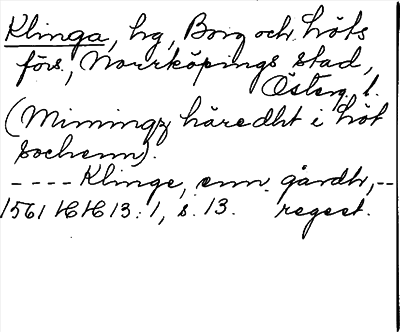 Klinga, hg, Borg och Löts
förs., Norrköpings stad,
Österg. l.
(Mimingz häredht i Löt
sochenn).
---- Klinge, enn gårdh, --
1561 HH 13: 1, s. 13. regest.